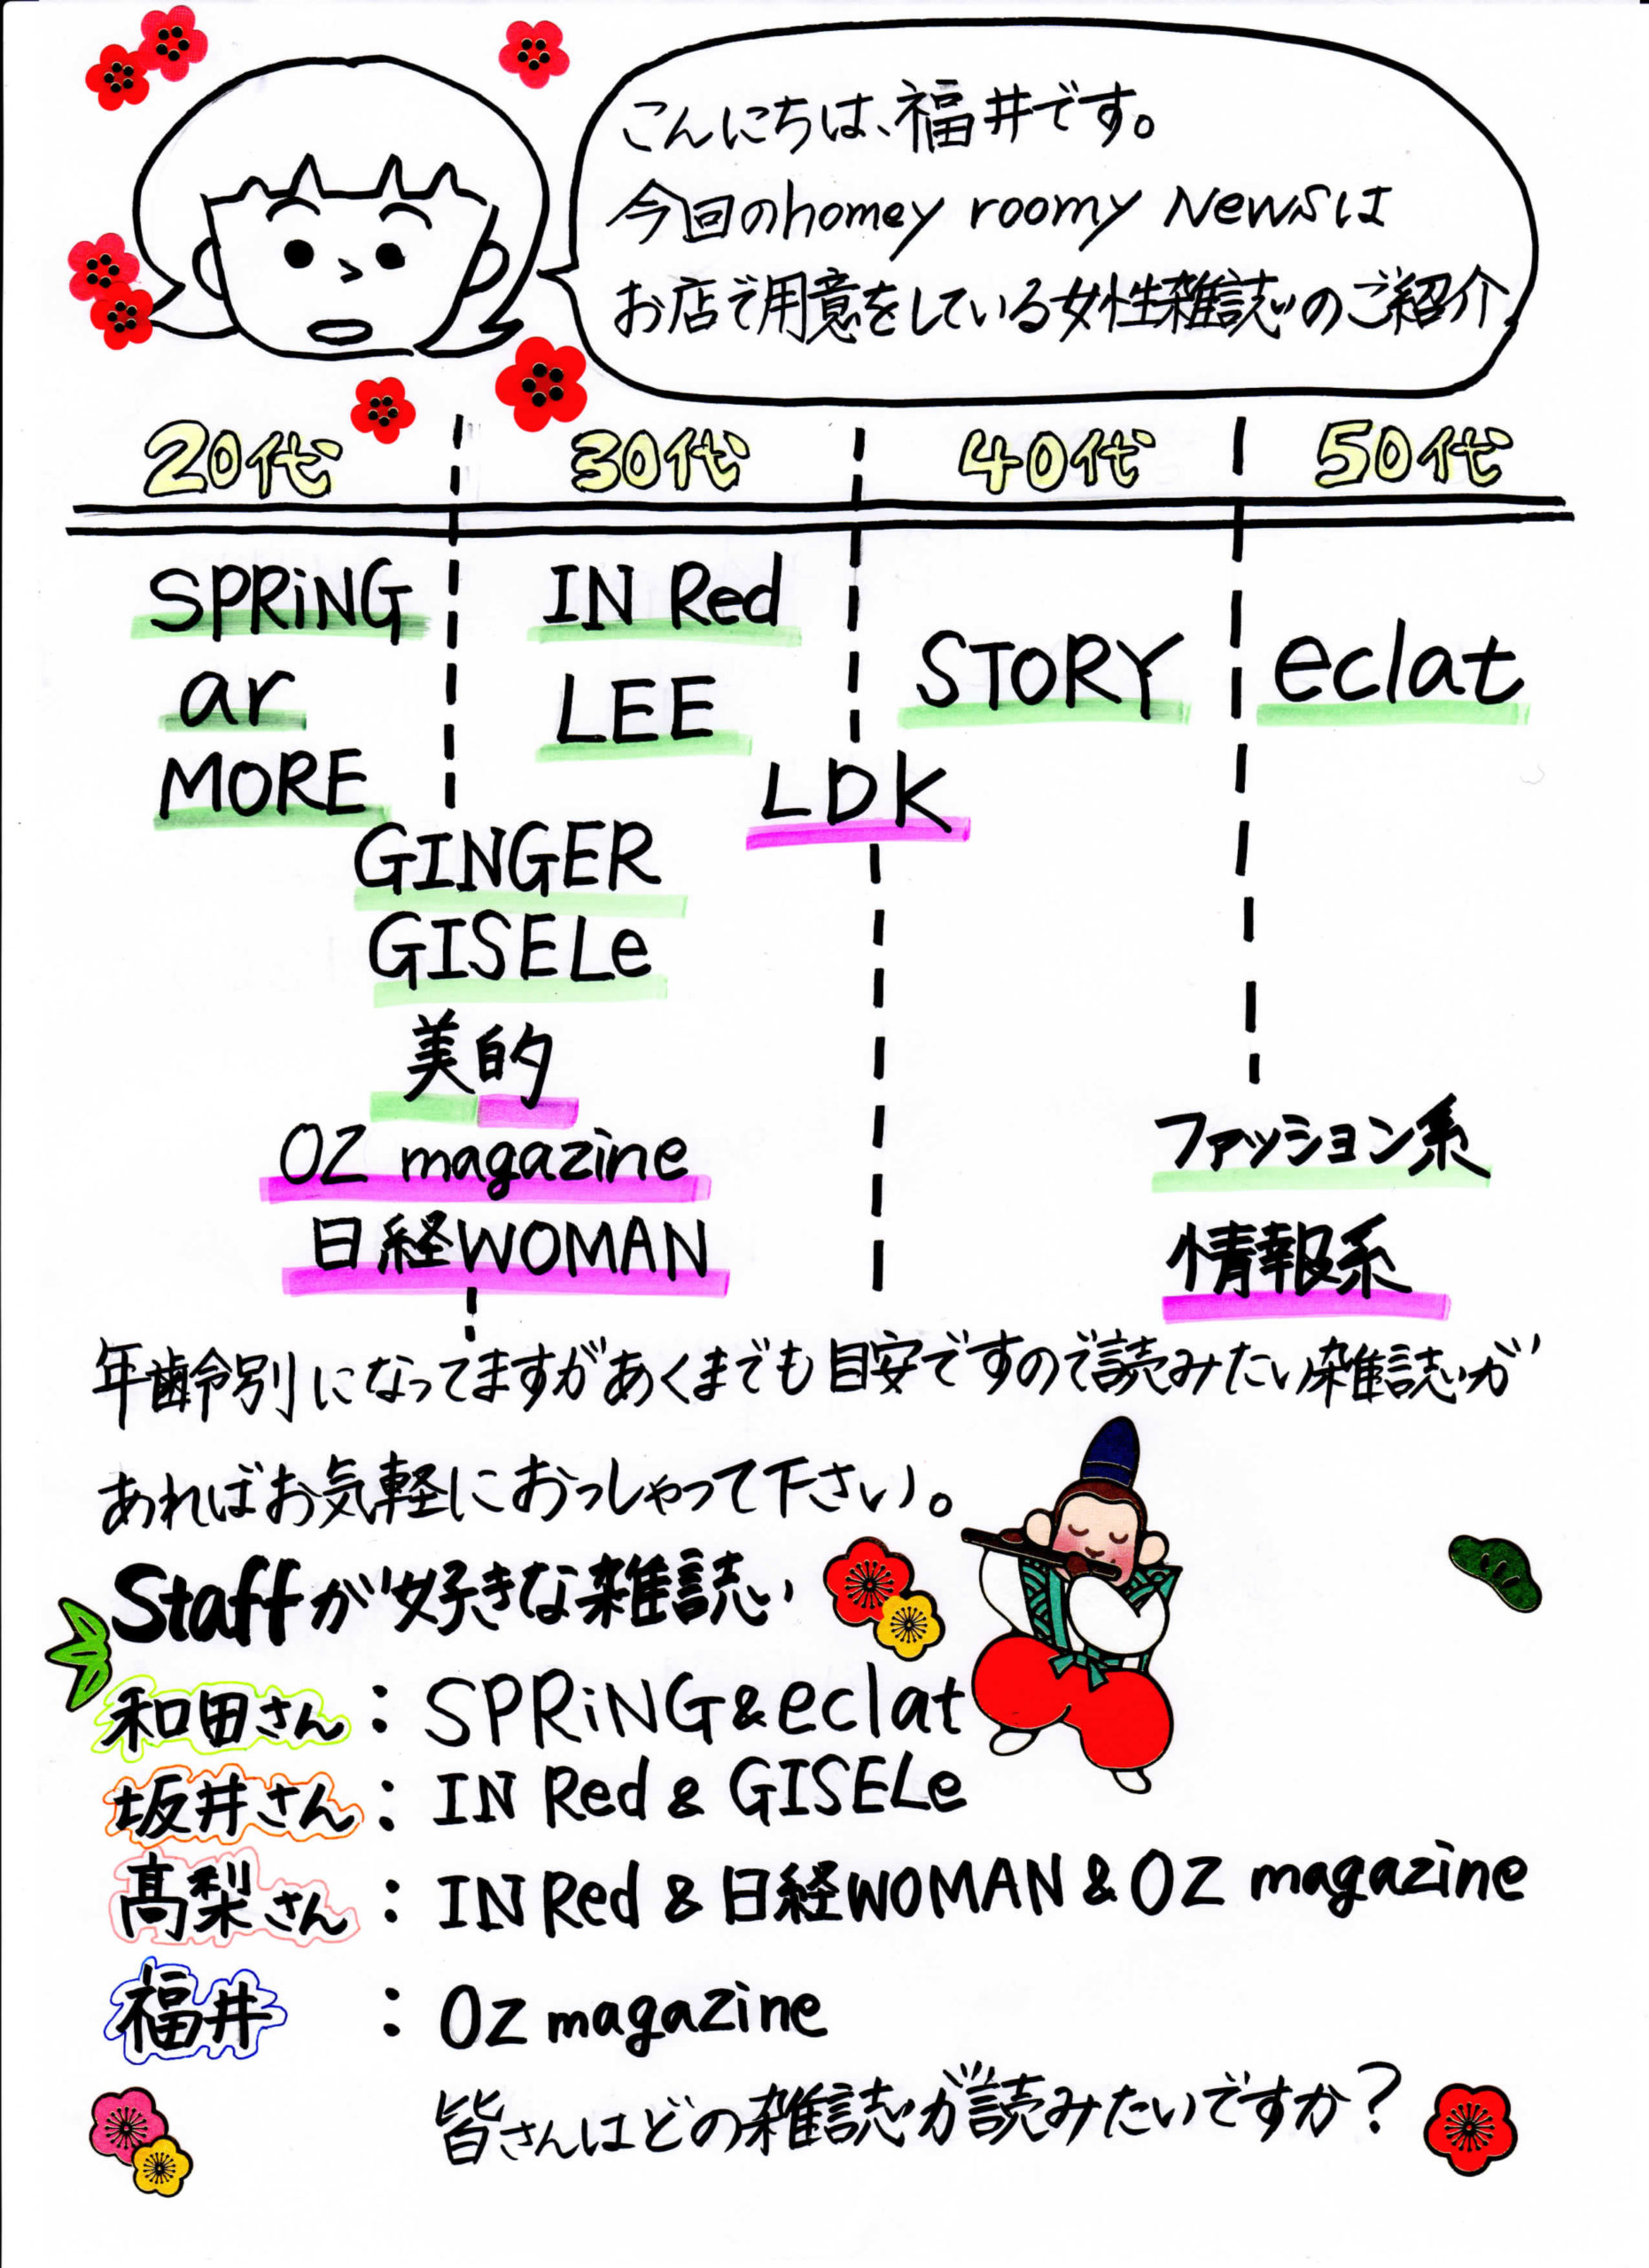 こんにちは、福井です。
今回のhomey roomy Newsは
お店で用意をしている女性雑誌のご紹介
20代 30代 40代 50代
SPRiNG IN Red
STORY eclat
ar LEE
MORE LDK
GINGER
GISELe
美的
OZ magazine ファッション系
日経WOMAN 情報系
年齢別になってますがあくまでも目安ですので読みたい雑誌が
あればお気軽におっしゃって下さい。
Staffが好きな雑誌
和田さん:SPRiNG&eclat
坂井さん:IN Red & GISELe
髙梨さん:IN Red & 日経WOMAN & OZ magazine
福井:OZ magazine
皆さんはどの雑誌が読みたいですか?